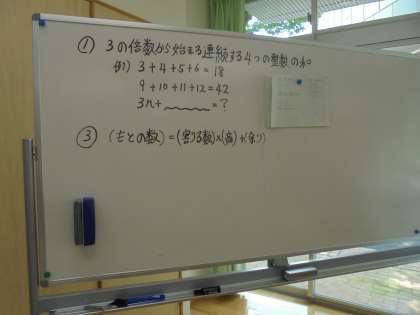 ① 3の倍数から始まる連続する4つの整数の和
例) 3+4+5+6=18
9+10+11+12=42
3n+﹏﹏﹏=?
③ (もとの数)=(割る数)×(商)+(余り)